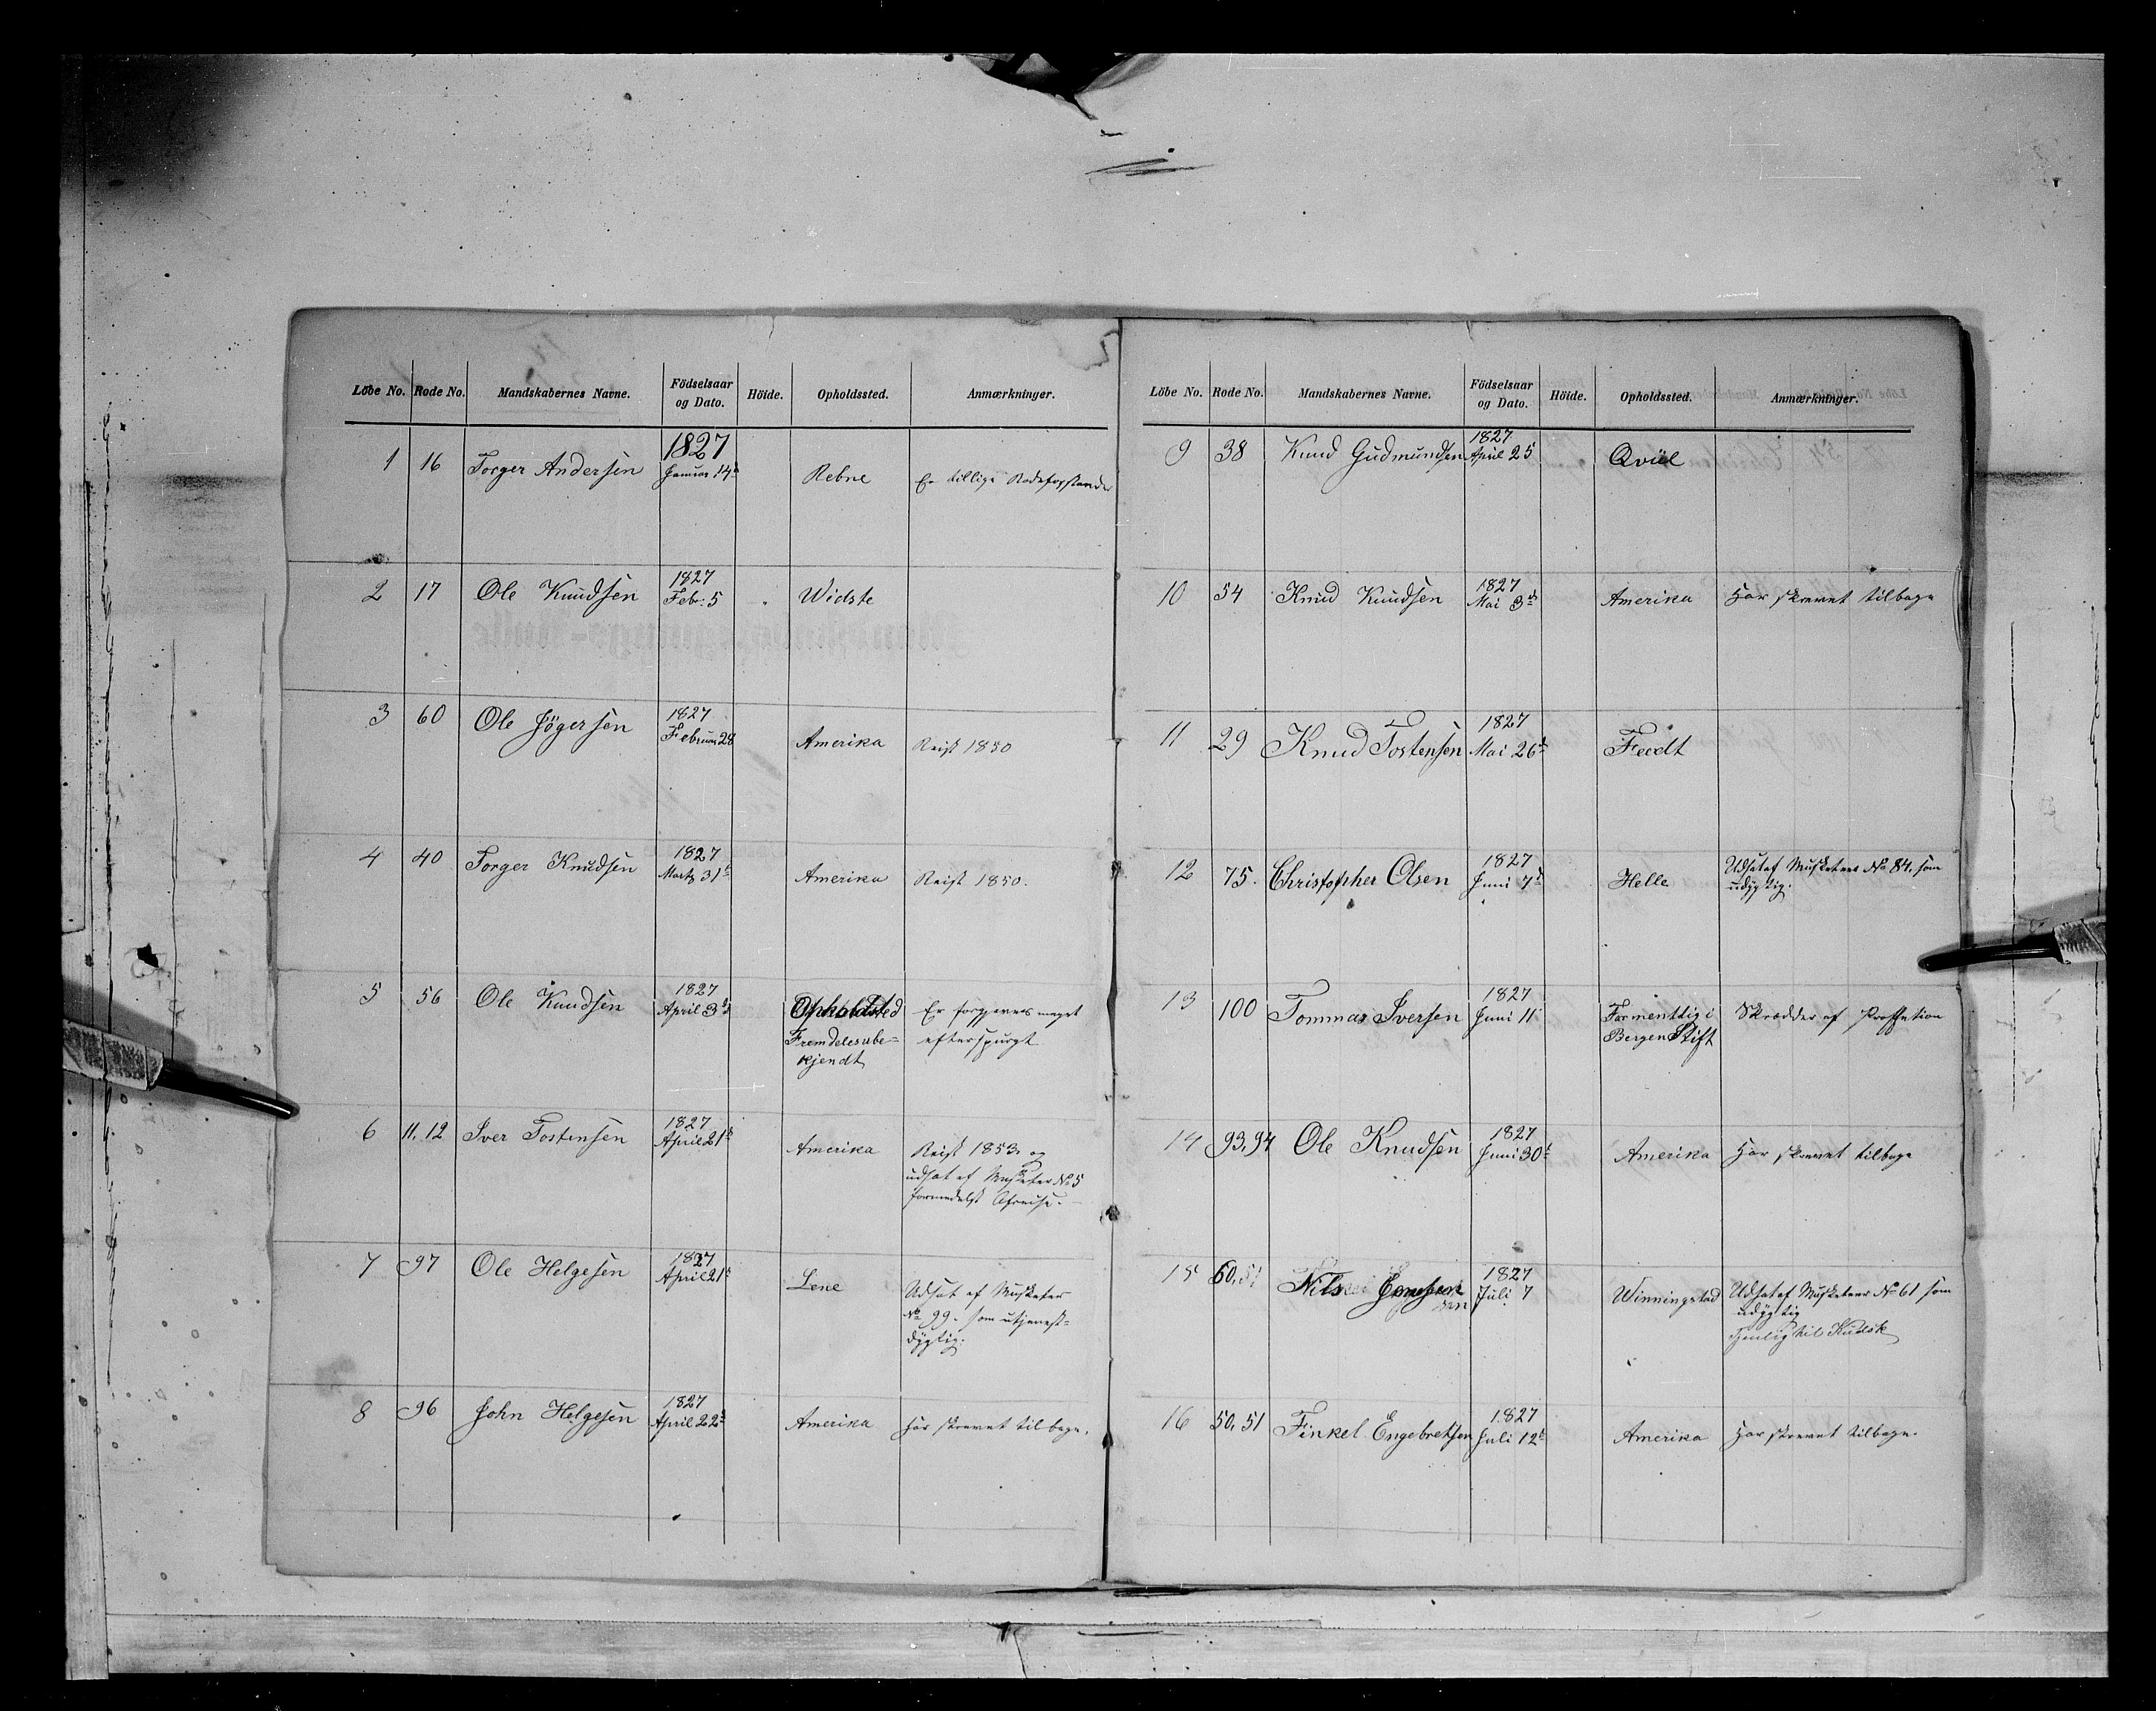 Löbe No. Rode No. Mandskabernes Navne. Födselsaar og Dato. Höide. Opholdssted. Anmærkninger.
1 16 Torger Andersen 1827 Januar 14de Rebne Er tillige Rodeforstander
2 17 Ole Knudsen 1827 Febr. 5 Widste
3 60 Ole Jögersen 1827 Februar 28 Amerika Reist 1850
4 40 Torger Knudsen 1827 Marts 31te Amerika Reist 1850.
5 56 Ole Knudsen 1827 April 3de Opholdsted Er forgjeves meget
Fremdeles ube- efterspurgt
kjendt
6 11, 12 Iver Tostensen 1827 April 21de Amerika Reist 1853 og
udsat af Musketer No 5
formedelst Afreise.
7 97 Ole Helgesen 1827 April 21de Lene Udsat af Musketer
No 99. som utjenest-
dygtig.
8 96 John Helgesen 1827 April 22de Amerika Har skrevet tilbage.
Löbe No. Rode No. Mandskabernes Navne. Födselsaar og Dato. Höide. Opholdssted. Anmærkninger.
9 38 Knud Gudmundsen 1827 April 25 Qviil
10 54 Knud Knudsen 1827 Mai 3de Amerika Har skrevet tilbage
11 29 Knud Tostensen 1827 Mai 26de Feedt
12 75. Christopher Olsen 1827 Juni 7de Helle Udsat af Musketeer No 84, som
udygtig.
13 100 Tommas Iversen 1827 Juni 11 Formentlig i Skrædder af Proffetion
Bergen Stift
14 93, 94 Ole Knudsen 1827 Juni 30te Amerika Har skrevet tilbage
15 60, 51 Nils 1827 Juli 7 Winningstad Udsat af Musketeer No 61 som
udygtig
tjenlig til Kudsk
16 50, 51 Tinkel Engebretsen 1827 Juli 12te Amerika Har skrevet tilbage.